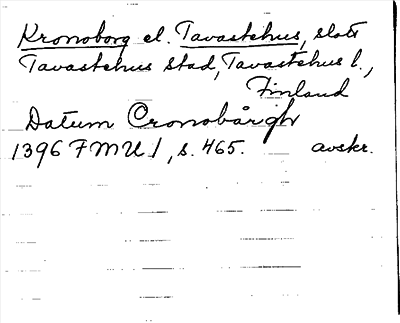 Kronoborg el. Tavastehus, slott
Tavastehus stad, Tavastehus l.,
Finland
Datum Cronobårgh
1396 FMU 1, s. 465. avskr.